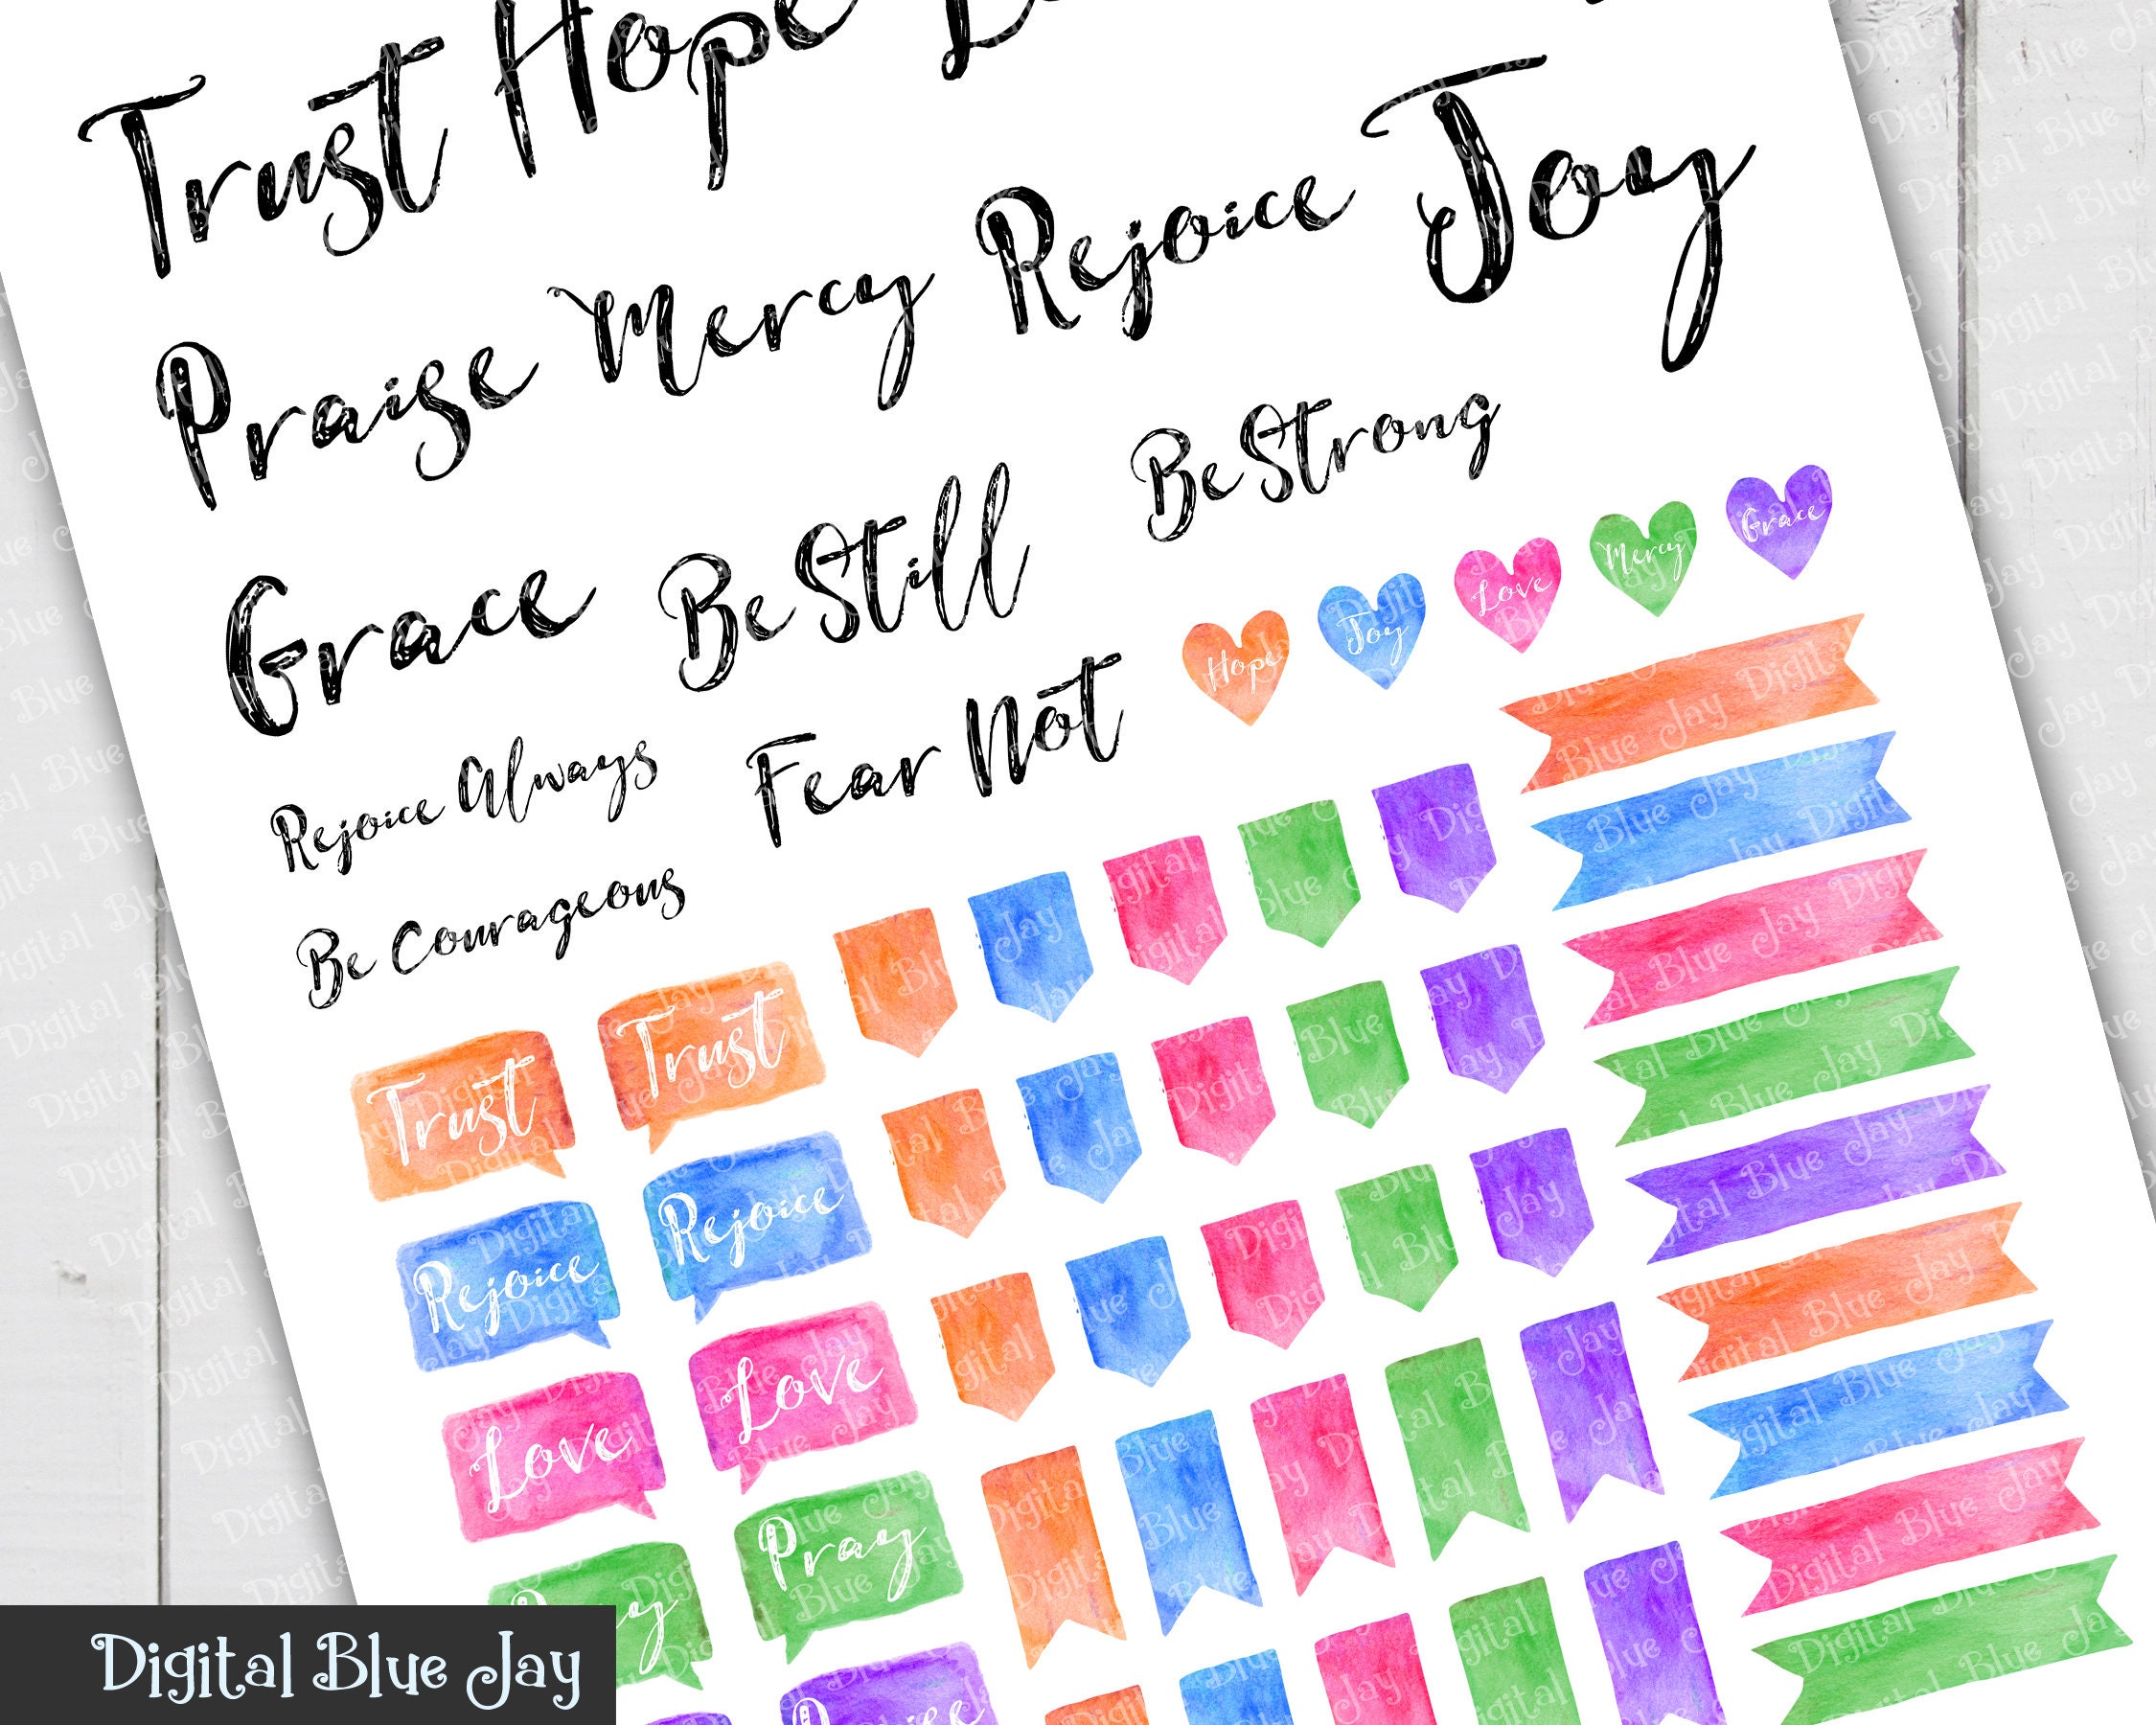 Trust Hope
Praise Mercy Rejoice Joy
Grace Be Still Be Strong
Hope Joy Love Mercy Grace
Rejoice Always Fear Not
Be Courageous
Trust Trust
Rejoice Rejoice
Love Love
Pray Pray
Praise
Digital Blue Jay